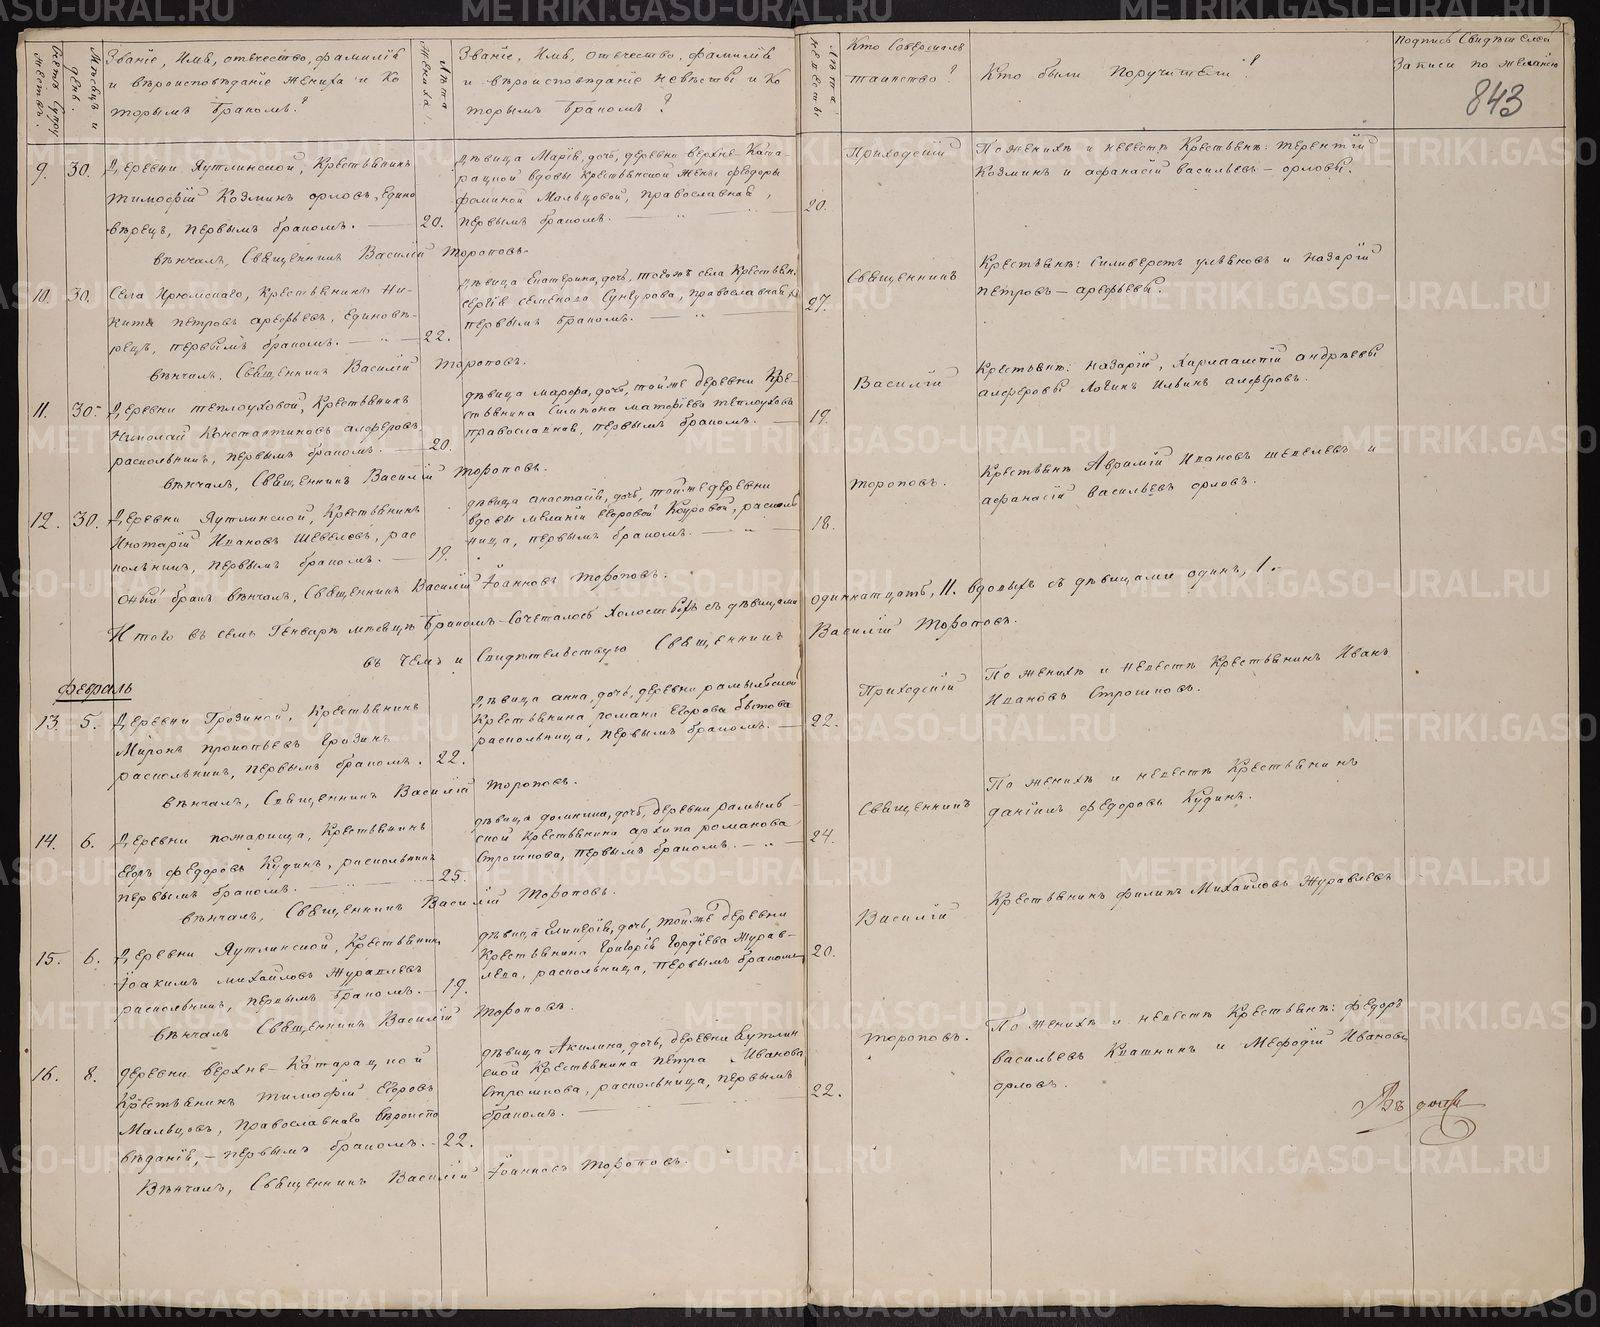 Счетъ супружествъ.
Мѣсяцъ и день.
Званіе, Имя, отечество, фамилія
и вѣроисповѣданіе жениха и ко
торымъ бракомъ?
Лѣта жениха.
Званіе, Имя, отечество, фамилія
и вѣроисповѣданіе невѣсты и ко
торымъ бракомъ?
Лѣта невѣсты
Кто Совершалъ
таинство?
Кто были Поручители?
Подпись Свидѣтелей
Записи по желанію
843
9. 30. Деревни Яутлинской, Крестьянинъ
Тимофій Козминъ орловъ, едино
вѣрецъ, первымъ бракомъ. 20.
Дѣвица Марія, дочь, деревни верхне-Ката-
рацкой вдовы Крестьянской жены Федоры
Фоминой Мальцовой, Православная,
первымъ бракомъ. 20.
вѣнчалъ, Священникъ Василій Тороповъ.
Приходскій
По женихѣ и невестѣ Крестьяне: терентій
Козминъ и афанасій васильевъ – орловы.
10. 30. Села Ирюмскаго, Крестьянинъ Ни-
кита петровъ арефьевъ, единовѣ-
рецъ, первымъ бракомъ. 22.
Дѣвица Екатерина, дочь, тогоже села Крестьян.
Сергія семенова Сунгурова, православная,
первымъ бракомъ. 27.
вѣнчалъ, Священникъ Василій Тороповъ.
Священникъ
Крестьяне: Силиверстъ ульяновъ и назарій
петровъ – арефьевы.
11. 30. Деревни теплоуховой, Крестьянинъ
Николай Константиновъ алферовъ
раскольникъ, первымъ бракомъ. 20.
дѣвица марфа, дочь, тойже деревни Кре-
стьянина Симиона матфіева теплоухова
православная, первымъ бракомъ. 19.
вѣнчалъ, Священникъ Василій Тороповъ.
Василій
Крестьяне: назарій, Харлампій андрѣевы
алферовы Логинъ Ильинъ алферовъ.
12. 30. Деревни Яутлинской, Крестьянинъ
Иванов Шевелевъ, рас
кольникъ, первымъ бракомъ. 19.
дѣвица анастасія, дочь, тойже деревни
вдовы меланіи егоровой раскол
ница, первымъ бракомъ. 18.
оный бракъ вѣнчалъ, Священникъ Василій Іоанновъ Тороповъ.
Тороповъ.
Крестьяне Аврамій Ивановъ шевелевъ и
афанасій васильевъ орловъ.
Итого въ семъ Генварѣ месяцѣ бракомъ Сочеталось Холостыхъ съ дѣвицами одиннатцать, 11. вдовыхъ съ дѣвицами одинъ, 1.
въ чемъ и Свидѣтельствую Священникъ Василій Тороповъ.
Февраль
13. 5. Деревни Грозиной, Крестьянинъ
Миронъ прокопьевъ Грозинъ
раскольникъ, первымъ бракомъ. 22.
дѣвица анна, дочь, деревни рамыльской
Крестьянина романа Егорова бытова
раскольница, первымъ бракомъ. 22.
вѣнчалъ, Священникъ Василій Тороповъ.
Приходскій
По женихѣ и невестѣ Крестьянинъ Иванъ
Ивановъ Строшковъ.
14. 6. Деревни пожарища, Крестьянинъ
Егоръ федоровъ Кудинъ, раскольникъ
первымъ бракомъ. 25.
дѣвица домникия, дочь, деревни рамыль-
ской Крестьянина архипа романова
Строшкова, первымъ бракомъ. 24.
вѣнчалъ, Священникъ Василій Тороповъ.
Священникъ
По женихѣ и невестѣ Крестьянинъ
даніилъ федоровъ Кудинъ.
15. 6. Деревни Яутлинской, Крестьянинъ
Іоакимъ михайловъ Журавлевъ
раскольникъ, первымъ бракомъ. 19.
дѣвица Гликерія, дочь, тойже деревни
Крестьянина Григорія Гордіева Журав-
лева, раскольница, первымъ бракомъ 20.
вѣнчалъ Священникъ Василій Тороповъ.
Василій
Крестьянинъ филипъ Михайловъ Журавлевъ
16. 8. деревни верхне-Катарацкой
Крестьянинъ тимофій Егоровъ
Мальцовъ, Православнаго вѣроиспо
вѣданія, – первымъ бракомъ. 22.
дѣвица Акилина, дочь, деревни Яутлин
ской Крестьянина петра Иванова
Строшкова, раскольница, первымъ
бракомъ. 22.
Вѣнчалъ, Священникъ Василій Іоанновъ Тороповъ.
Тороповъ.
По женихѣ и невестѣ Крестьяне: федоръ
васильевъ Квашнинъ и Мефодій Ивановъ
орловъ.
METRIKI.GASO-URAL.RU